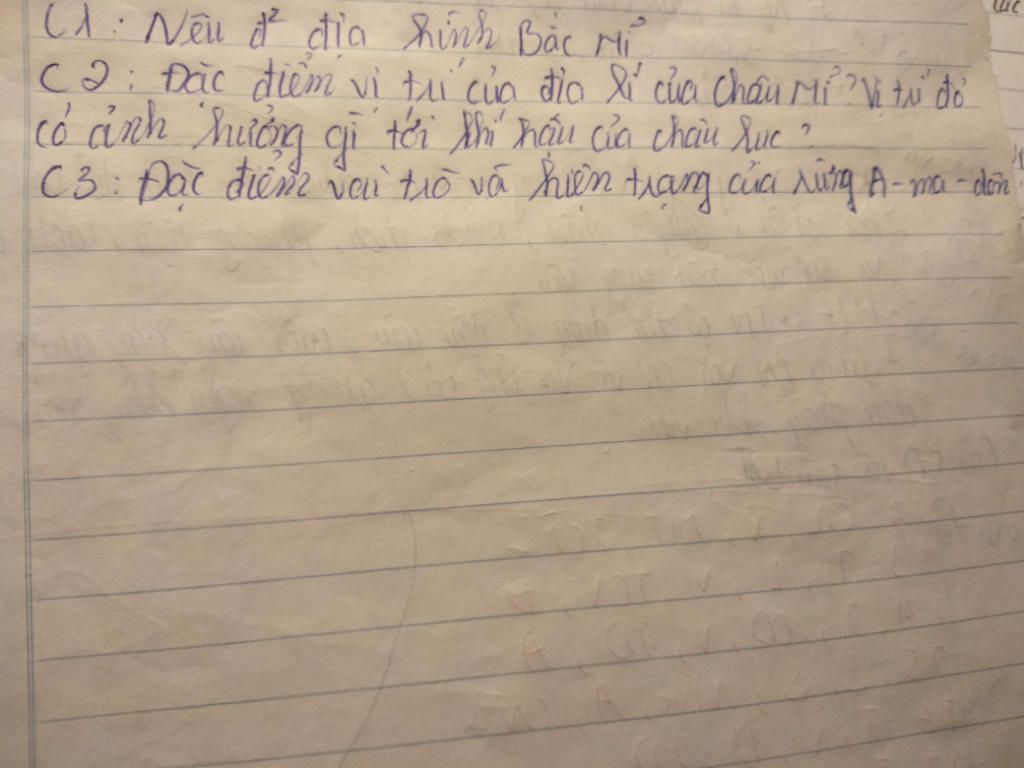 C1 : Nêu đ² địa hình Bắc Mĩ
C2 : Đặc điểm vị trí của địa lí của châu Mĩ ? Vị trí đó
có ảnh hưởng gì tới khí hậu của châu lục ?
C3 : Đặc điểm vai trò và hiện trạng của rừng A-ma-dôn